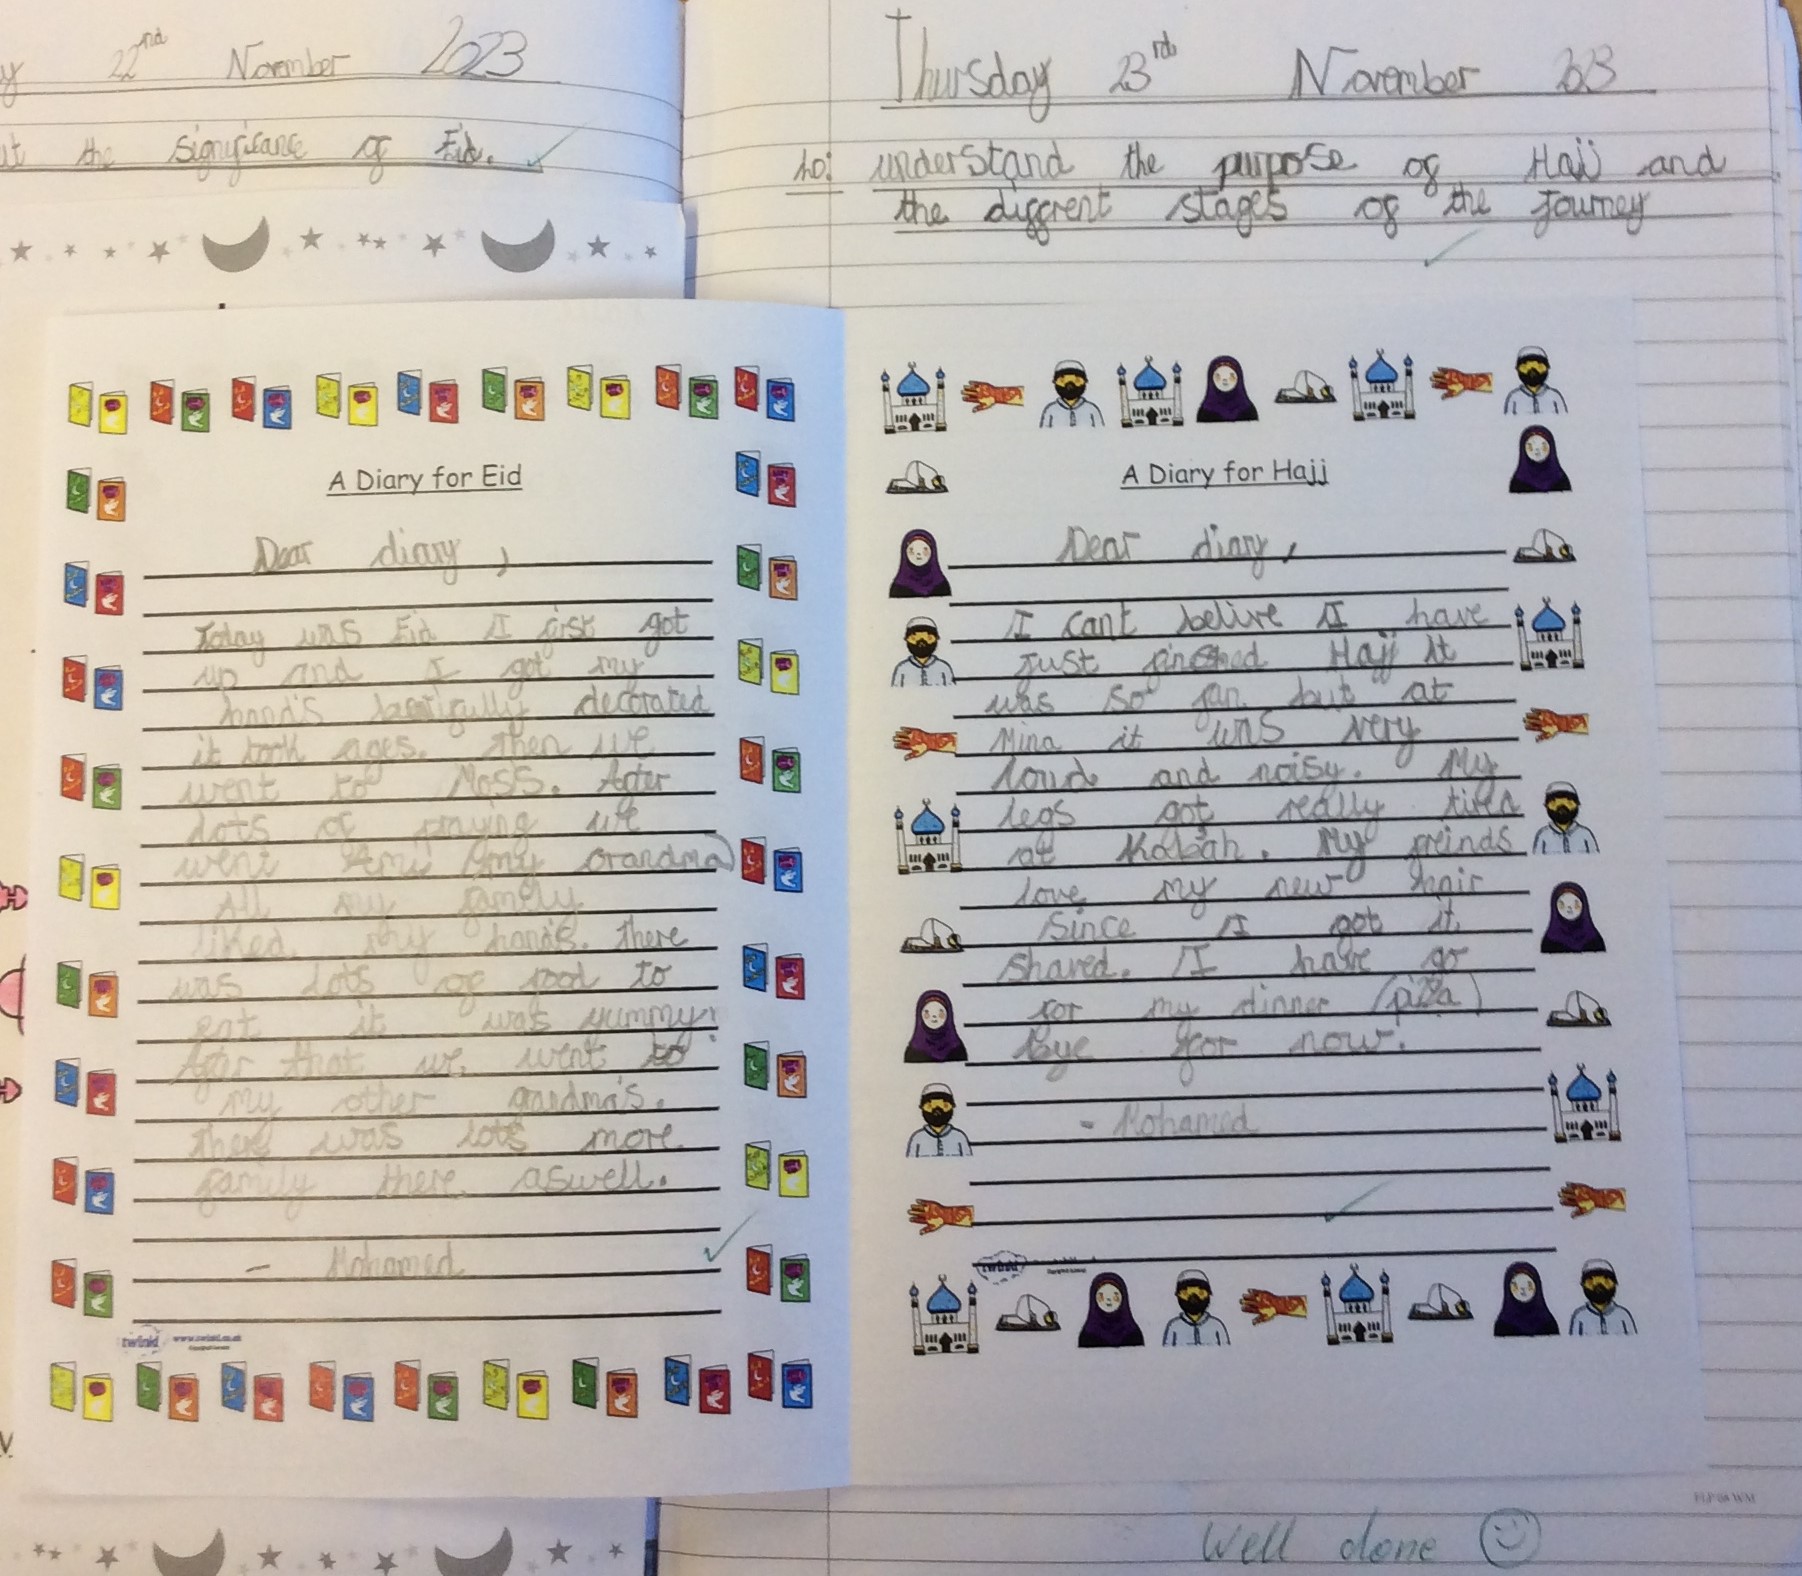 y 22nd November 2023
ut the significance of Eid.
A Diary for Eid
Dear diary,
Today was Eid I first got
up and I got my
hands beatifully decorated
it took ages. Then we
went to Moss. After
lots of praying we
went (my grandma)
All my family
liked my hands. There
was lots of food to
eat it was yummy!
After that we went to
my other grandma's.
there was lots more
family there aswell.
- Mohamed
twinkl www.twinkl.co.uk
Thursday 23rd November 2023
LO: understand the purpose of Hajj and
the diffrent stages of the journey
A Diary for Hajj
Dear diary,
I cant belive I have
just finished Hajj It
was so fun but at
Mina it was very
loud and noisy. My
legs got really tired
at Kabah. My freinds
love my new hair
Since I got it
shaved. I have go
for my dinner (pizza)
bye for now.
- Mohamed
twinkl
FLP 06 WM
Well done